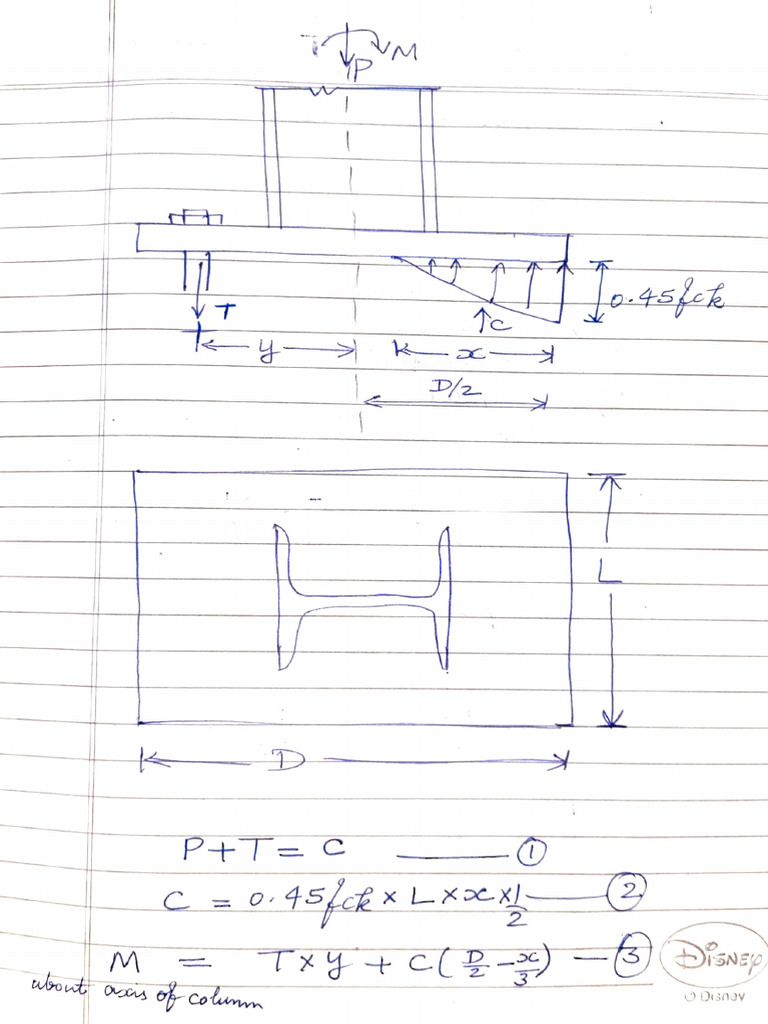 M
P
T
0.45fck
C
y
x
D/2
L
D
P+T = C ——— ①
C = 0.45fck × L × x × 1/2 —— ②
M = T×y + C(D/2 - x/3) — ③
about axis of column
DISNEY
© Disney